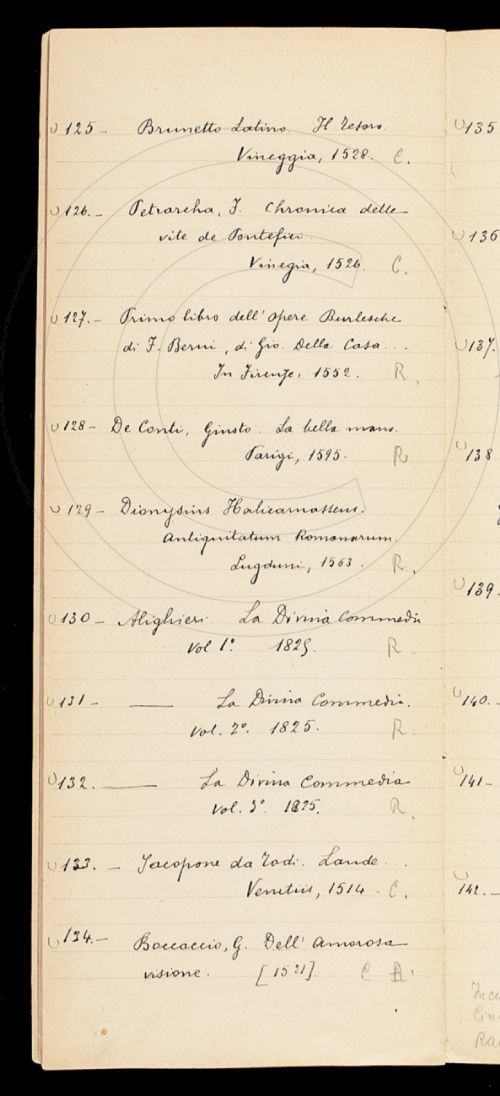 125 - Brunetto Latino. Il Tesoro.
Vineggia, 1528. C.
126. - Petrarcha, F. Chronica delle
vite de Pontefici.
Vinegia, 1526 C.
127. - Primo libro dell' opere Burlesche
di F. Berni, di Gio. Della Casa...
In Firenze, 1552. R.
128 - De Conti, Giusto. La bella mano.
Parigi, 1595. R
129 - Dionysius Halicarnasseus.
Antiquitatum Romanarum.
Lugduni, 1563. R.
130 - Alighieri. La Divina Commedia
vol 1º 1825. R.
131 - —— La Divina Commedia.
vol. 2º. 1825. R
132. —— La Divina Commedia
vol. 3º. 1825. R.
133. - Jacopone da Todi. Laude...
Venetiis, 1514. C.
134. - Boccaccio, G. Dell' amorosa
visione. [1521]. C R.
135
136
137.
138
139.
140. -
141 -
142. -